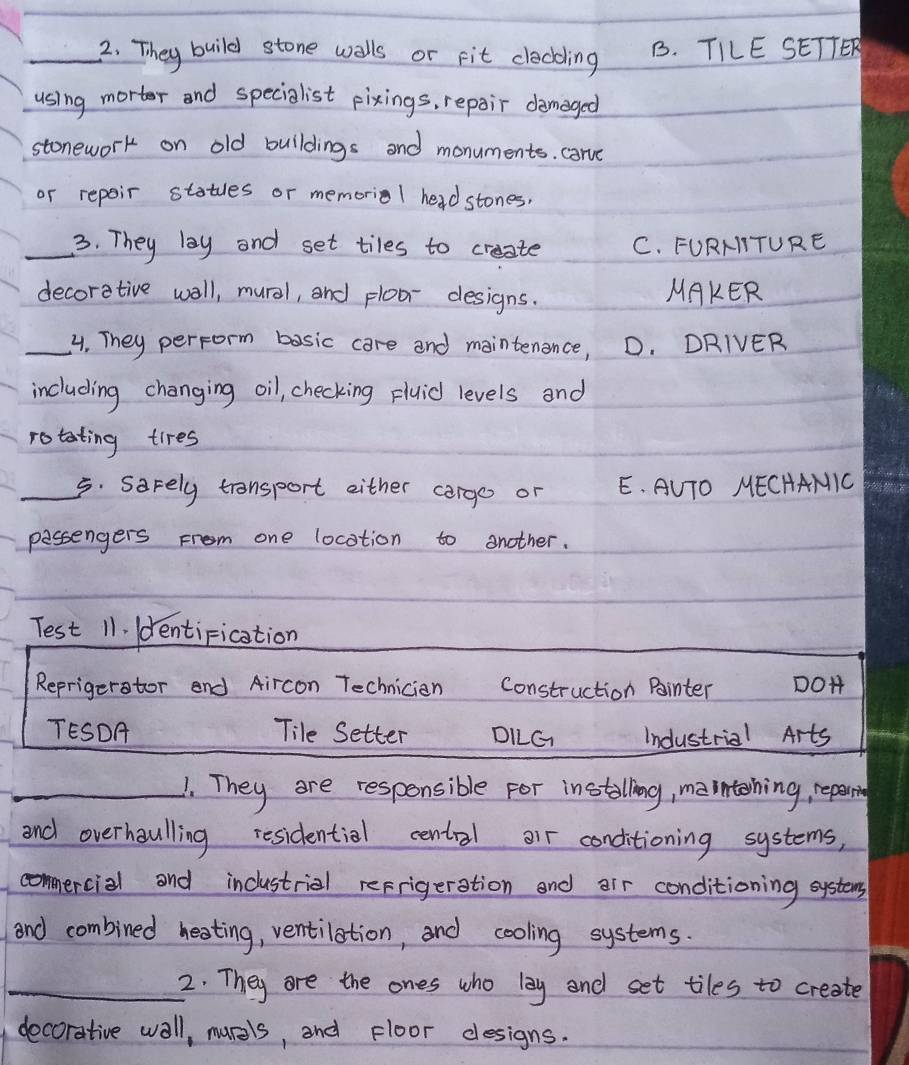 ____2. They build stone walls or fit cladding B. TILE SETTER
using mortar and specialist fixings, repair damaged
stonework on old buildings and monuments. carve
or repair statues or memorial headstones.
____3. They lay and set tiles to create C. FURNITURE
decorative wall, mural, and floor designs. MAKER
____4. They perform basic care and maintenance, D. DRIVER
including changing oil, checking fluid levels and
rotating tires
____5. Safely transport either cargo or E. AUTO MECHANIC
passengers from one location to another.
Test II. Identification
Refrigerator and Aircon Technician Construction Painter DOH
TESDA Tile Setter DILG Industrial Arts
________1. They are responsible for installing, maintaining, repairing
and overhaulling residential central air conditioning systems,
commercial and industrial refrigeration and air conditioning systems
and combined heating, ventilation, and cooling systems.
________2. They are the ones who lay and set tiles to create
decorative wall, murals, and floor designs.